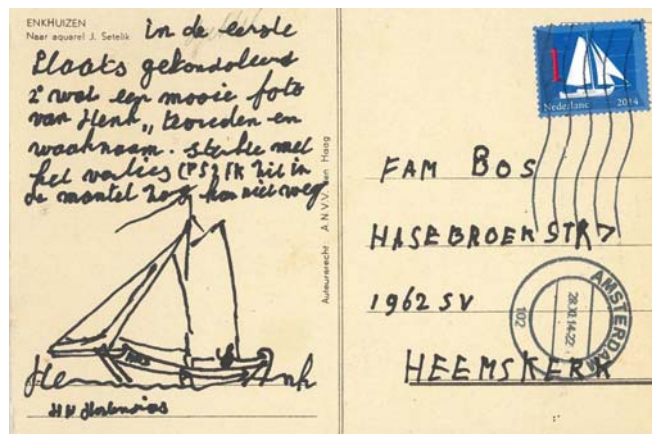 ENKHUIZEN
Naar aquarel J. Setelik
in de eerste
plaats gekondoleerd
2e wat een mooie foto
van Henk,, tevreden en
waaknaam. sterkte met
het verlies (PS) IK zit in
de mantel zorg kan niet weg
Auteursrecht: A.N.V.V. Den Haag
Henk
1
Nederland 2014
FAM BOS
HASEBROEKSTR 7
1962 SV
HEEMSKERK
AMSTERDAM
28.XI.14-22.
102